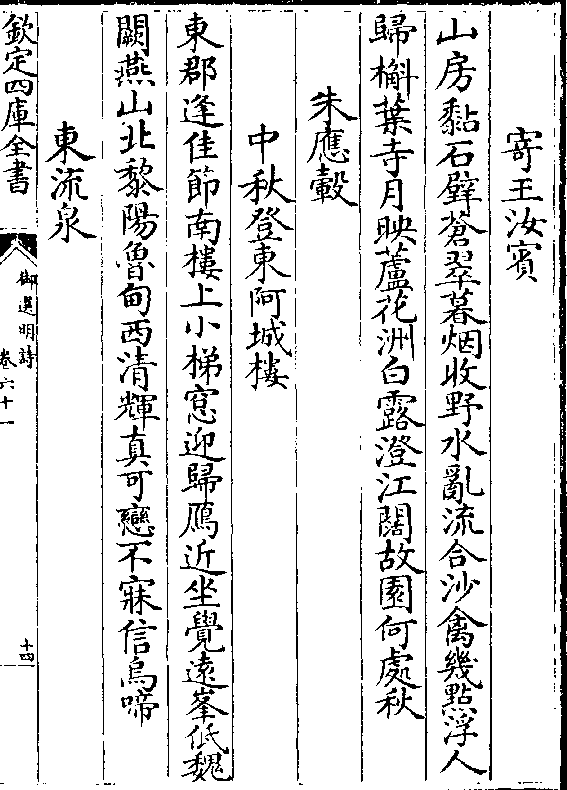 寄王汝賓
山房黏石壁蒼翠暮烟收野水亂流合沙禽幾點浮人
歸槲葉寺月映蘆花洲白露澄江闊故園何處秋
朱應轂
中秋登東阿城樓
東郡逢佳節南樓上小梯窓迎歸鴈近坐覺遠峯低魏
闕燕山北黎陽魯甸西清輝真可戀不寐信烏啼
東流泉
欽定四庫全書
御選明詩
卷六十一
十四